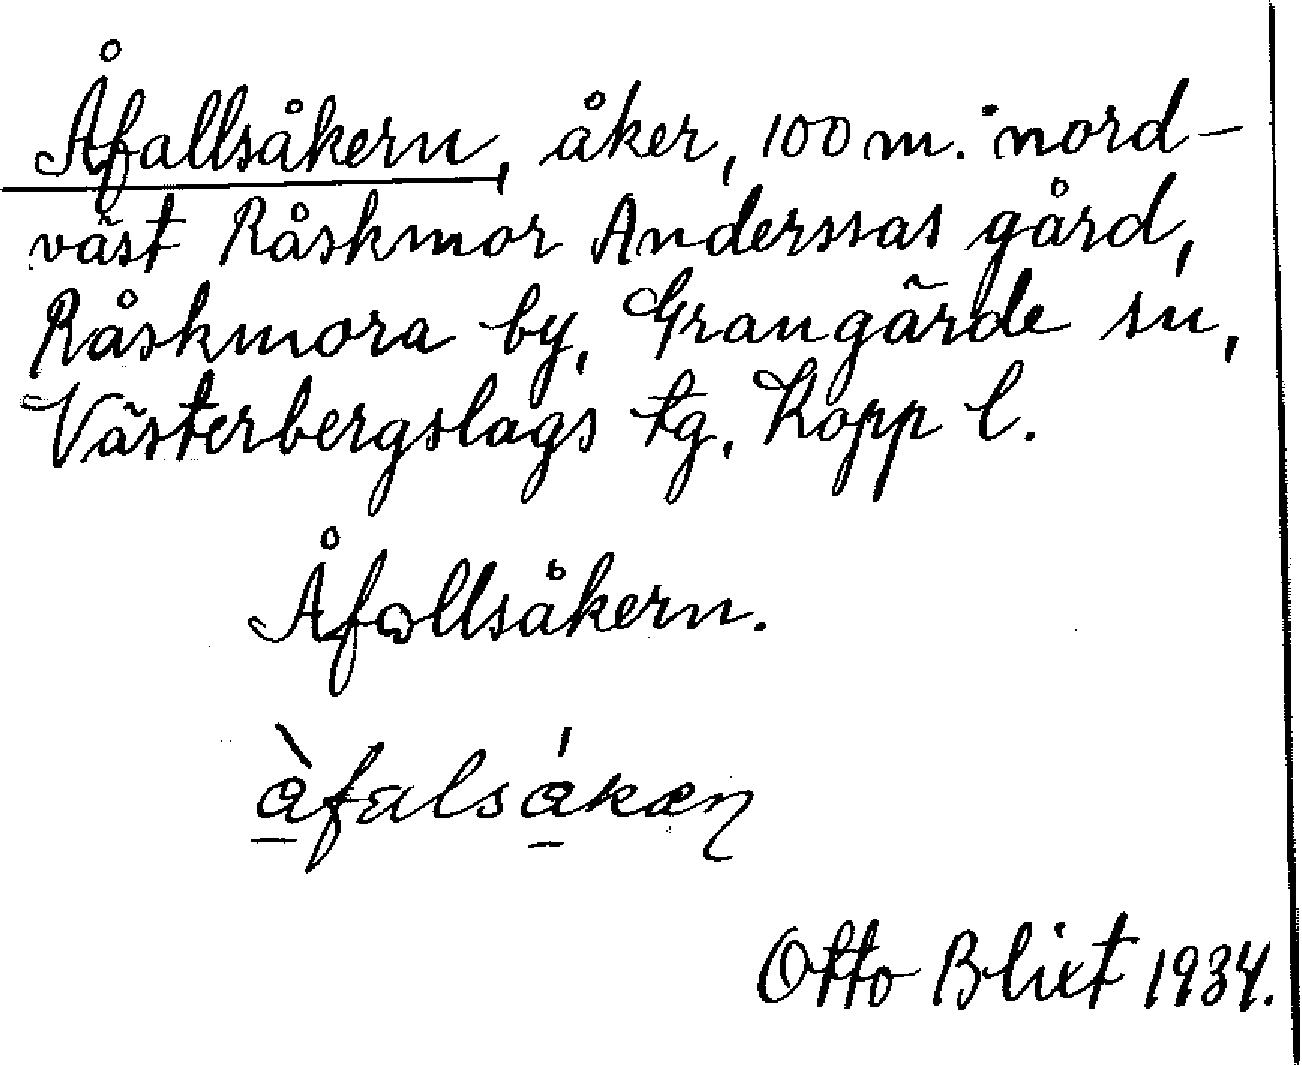 Åfallsåkern, åker, 100 m. nord-
väst Råskmor Anderssas gård,
Råskmora by, Grangärde sn,
Västerbergslags tg. Kopp l.
Åfallsåkern.
å̀falsǻkæṇ
Otto Blixt 1934.